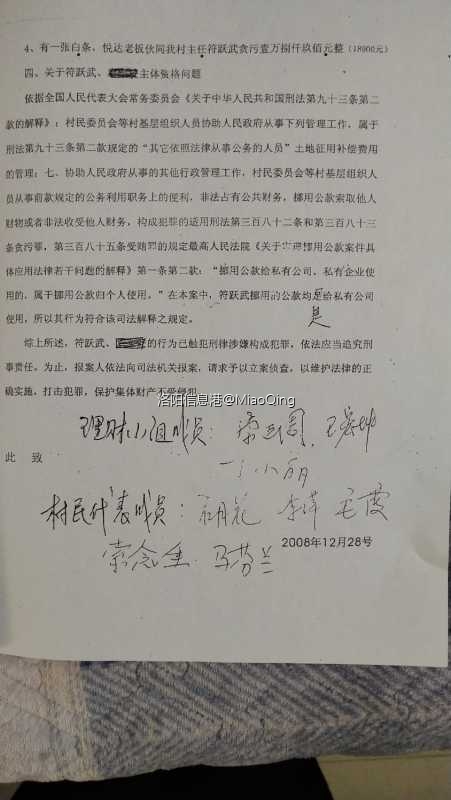 4、有一张白条、悦达老板伙同我村主任符跃武贪污壹万捌仟玖佰元整（18900元）
四、关于符跃武、主体资格问题
依据全国人民代表大会常务委员会《关于中华人民共和国刑法第九十三条第二
款的解释》：村民委员会等村基层组织人员协助人民政府从事下列管理工作，属于
刑法第九十三条第二款规定的“其它依照法律从事公务的人员”土地征用补偿费用
的管理；七、协助人民政府从事的其他行政管理工作，村民委员会等村基层组织人
员从事前款规定的公务利用职务上的便利，非法占有公共财务，挪用公款索取他人
财物或者非法收受他人财务，构成犯罪的适用刑法第三百八十二条和第三百八十三
条贪污罪，第三百八十五条受贿罪的规定最高人民法院《关于审理挪用公款案件具
体应用法律若干问题的解释》第一条第二款：“挪用公款给私有公司、私有企业使
用的，属于挪用公款归个人使用。”在本案中，符跃武挪用的公款均是给私有公司
使用，所以其行为符合该司法解释之规定。
是
综上所述，符跃武、的行为已触犯刑律涉嫌构成犯罪，依法应当追究刑
事责任。为止，报案人依法向司法机关报案，请求予以立案侦查，以维护法律的正
确实施，打击犯罪，保护集体财产不受侵犯
洛阳信息港@MiaoQing
理财小组成员：
此 致
丁小丽
村民代表成员： 李萍 毛霞
索念生 马芬兰
2008年12月28号